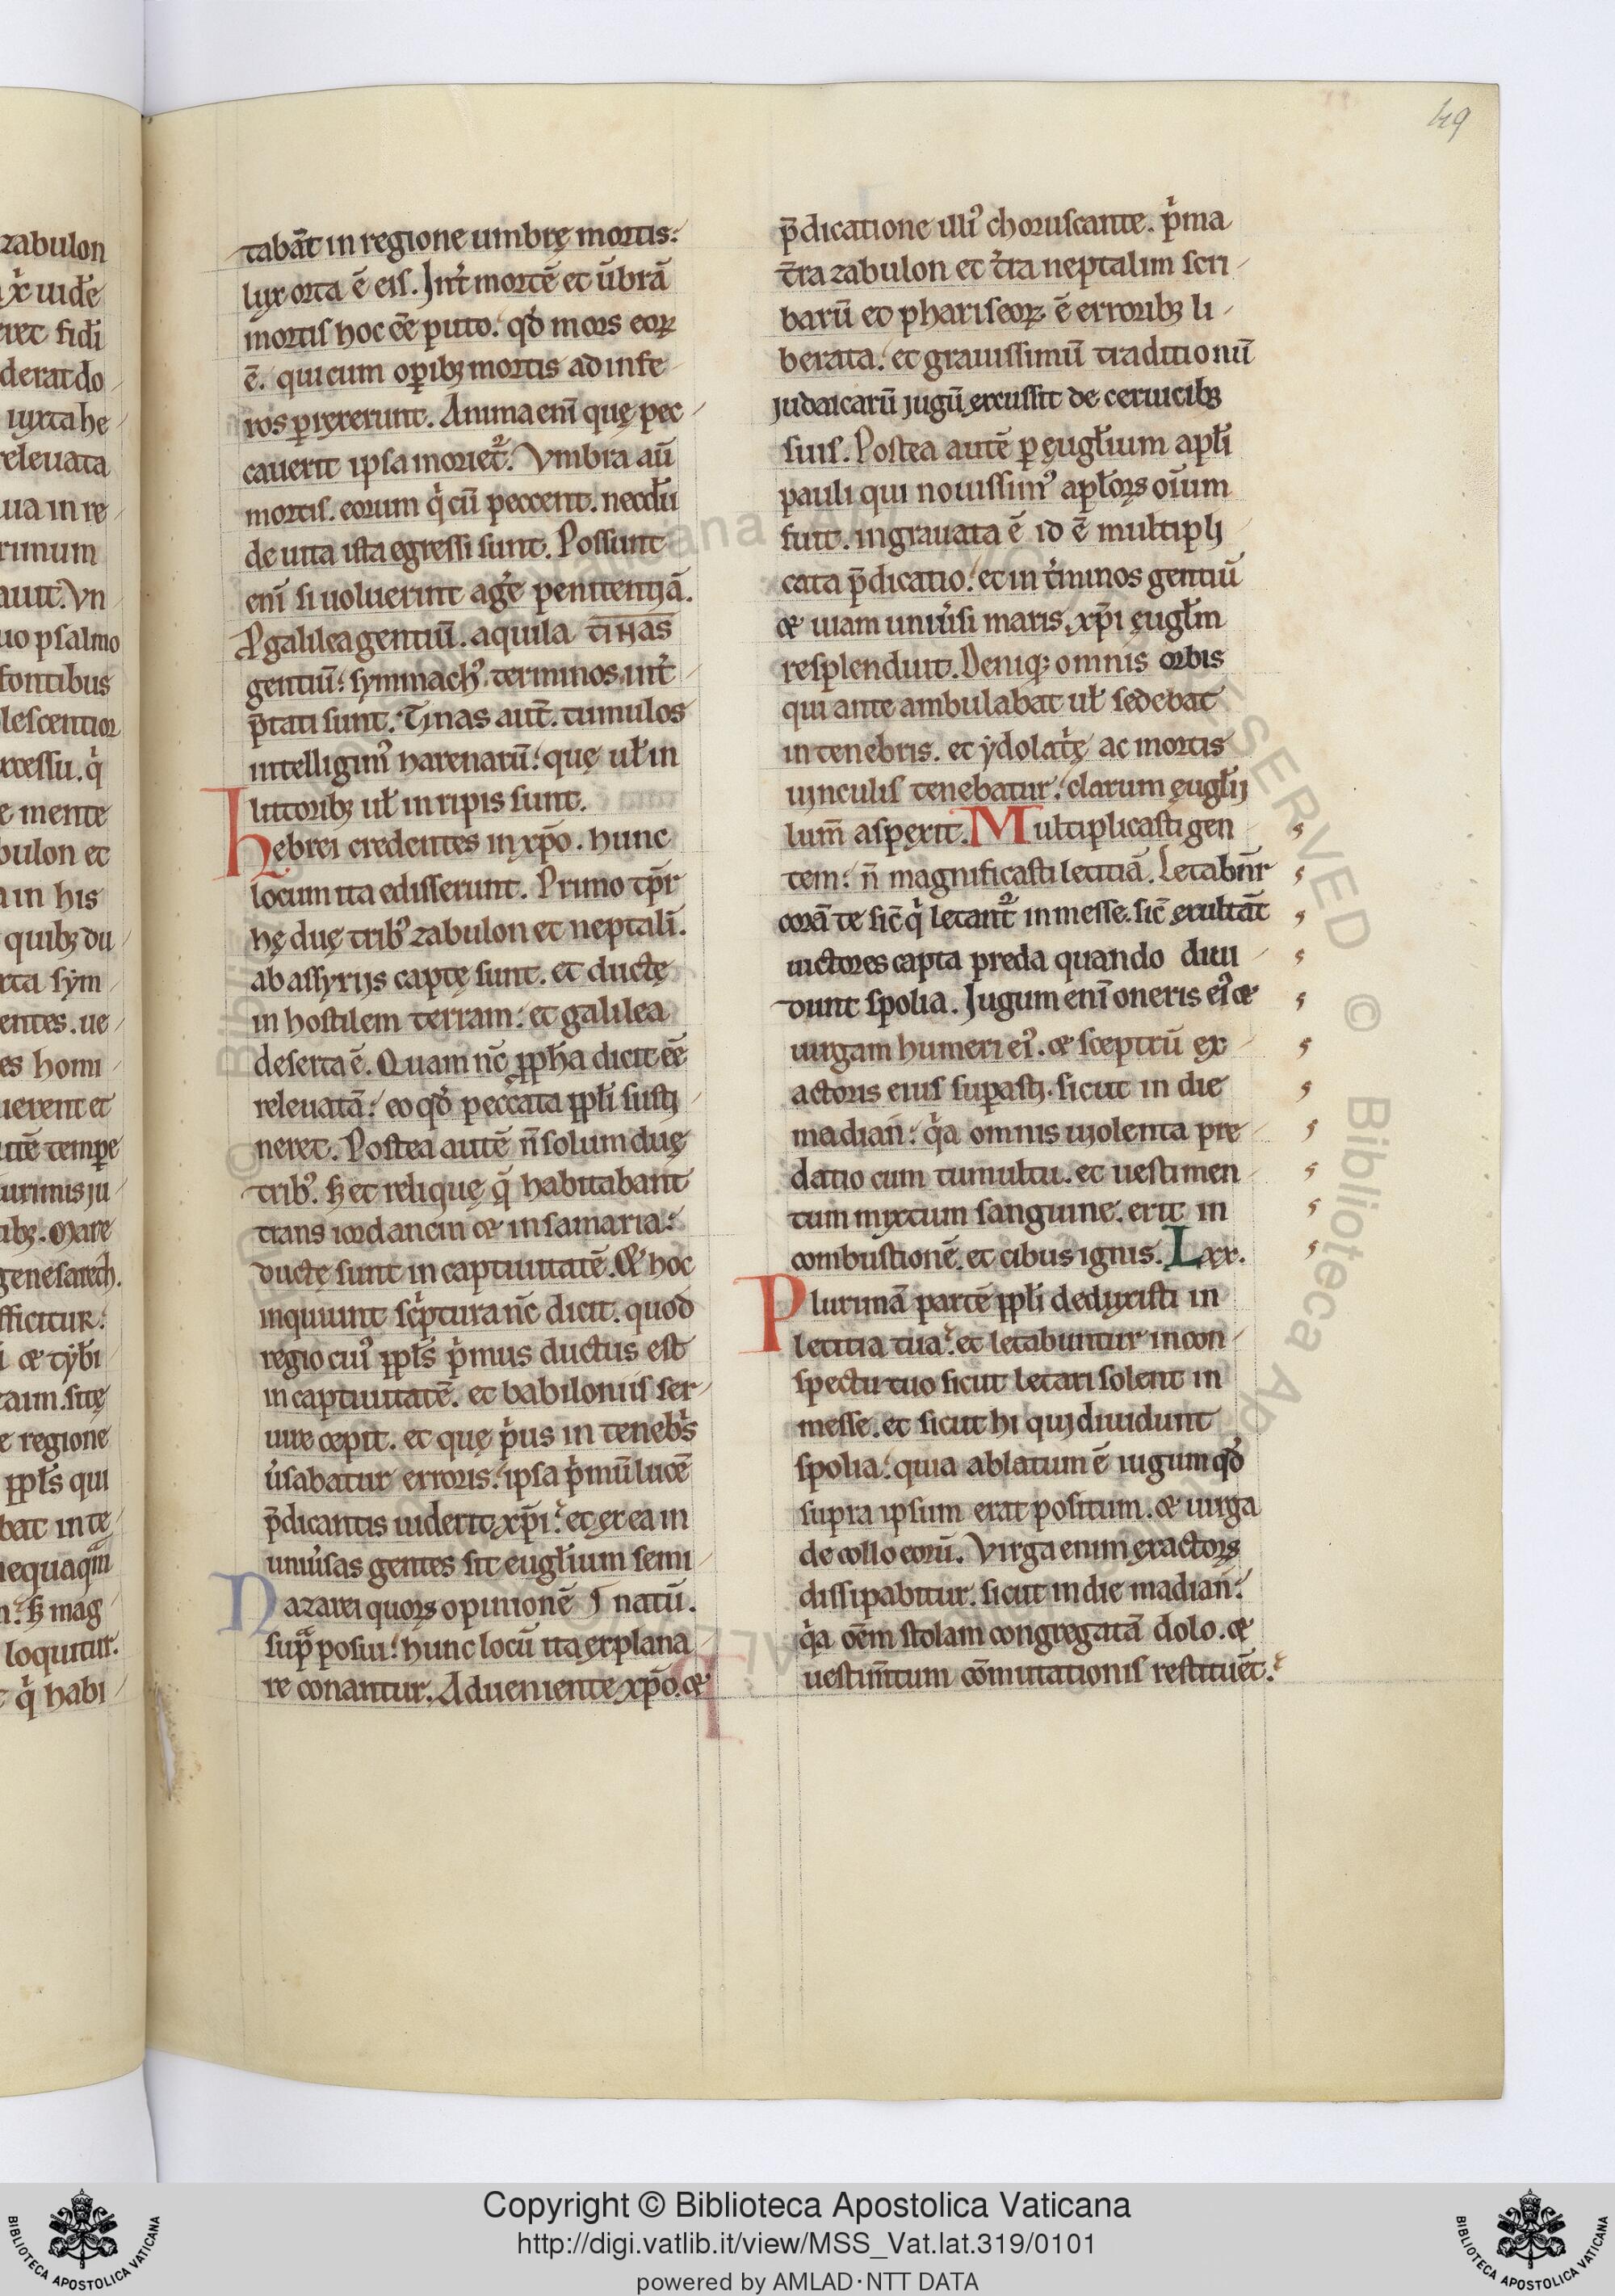 49
zabulon
x̾ uid̾e
eret fidi
derat do
iuxta he
releuata
ua in re
rimum
auit. Vn
uo psalmo
fontibus
lescentior
excessu. q̾
e mente
bulon et
a in his
quibꝫ du
rta sym
entes. ue
es homi
uerent et
utē temꝑe
urimis ju
ibꝫ. Mare
genesareth.
fficitur:
i & tyb̄i
raim. sitę
e regione
ppl̄s qui
bat in tę
nequaqᵃm
n: sꝫ mag
loquitur.
q̾ habi
tabāt in regione umbrę mortis:
lyx orta ē eis. Int̾ mortē et ūbrā
mortis hoc ēē puto: qđ mors eoꝝ
ē. qui cum oꝑibꝫ mortis ad infe
ros ꝑrexerunt. Anima eni̅ quę pec
cauerit ipsa moriet᷑. Vmbra aū
mortis. eorum q̾ cū peccent. necdū
de uita ista egressi sunt. Possunt
eni̅ si uoluerint ag̾e penitentiā.
P galilea gentiū. aquila THNAS
gentiū: symmachꝰ. terminos int̾
p̄tati sunt. Tinas aut̄. tumulos
intelligimꝰ harenarū: quę ul̄ in
littoribꝫ ul̄ in ripis sunt.
Hebrei credentes in xp̄o. hunc
locum ita edisserunt. Primo tp̄r
hę duę tribꝰ zabulon et neptali̅.
ab assyrijs captę sunt. et ductę
in hostilem terram: et galilea
deserta ē. Quam nc̄ ꝓph̄a dicit ēē
releuatā: eo qđ peccata ppl̄i susti
neret. Postea autē n̄ solum duę
tribꝰ. sꝫ et reliquę q̄ habitabant
trans iordanem & in samaria:
ductę sunt in captiuitatē. & hoc
inquiunt sc̾ptura nc̄ dicit. quod
regio cuiꝰ ppl̄s p̾mus ductus est
in captiuitatē. et babiloniis ser
uire cepit. et quę p̾us in teneb̾s
u̾sabatur erroris: ipsa p̾mū lucē
p̄dicantis uiderit xp̄i: et ex ea in
uniu̾sas gentes sit eugl̄ium semi
Nazarei quoꝝ opinionē I natū.
supᵃ posui: hunc locū ita explana
re conantur. Adueniente xp̄o. &
p̄dicatione illiꝰ choruscante. p̾ma
t̄ra zabulon et t̄ra neptalim scri
barū et phariseoꝝ ē erroribꝫ li
berata: et grauissimū traditionū
judaicarū jugū excussit de ceruicibꝫ
suis. Postea autē ꝑ eugl̄ium apl̄i
pauli qui nouissimꝰ apl̄oꝝ oīum
fuit. ingrauata ē id ē multipli
cata p̄dicatio: et in t̾minos gentiū
& uiam uniu̾si maris xp̄i eugl̄m
resplenduit. Deniqꝫ omnis orbis
qui ante ambulabat ul̄ sedebat
in tenebris. et ydolat̾ę ac mortis
uinculis tenebatur: clarum eugl̄ij
lum̄ aspexit. Multiplicasti gen
tem: n̄ magnificasti letitiā. Letabn̄r
corā te sic̄ q̾ letant᷑ in messe. sic̄ exultāt
uictores capta preda quando diui
dunt spolia. Jugum eni̅ oneris eiꝰ &
uirgam humeri eiꝰ. & sceptrū ex
actoris eius suꝑasti. sicut in die
madian: q̾a omnis uiolenta pre
datio cum tumultu. et uestimen
tum mixtum sanguine. erit in
combustionē. et cibus ignis. Lxx.
Plurimā partē ppl̄i deduxisti in
letitia tua: et letabuntur in con
spectu tuo sicut letari solent in
messe. et sicut hi qui diuidunt
spolia: quia ablatum ē iugum qđ
supra ipsum erat positum. & uirga
de collo eorū. Virga enim exactoꝝ
dissipabitur. sicut in die madian:
q̾a oēm stolam congregatā dolo. &
uestim̄tum cōmutationis restituēt.
Copyright © Biblioteca Apostolica Vaticana
http://digi.vatlib.it/view/MSS_Vat.lat.319/0101
powered by AMLAD·NTT DATA
BIBLIOTECA APOSTOLICA VATICANA
BIBLIOTECA APOSTOLICA VATICANA